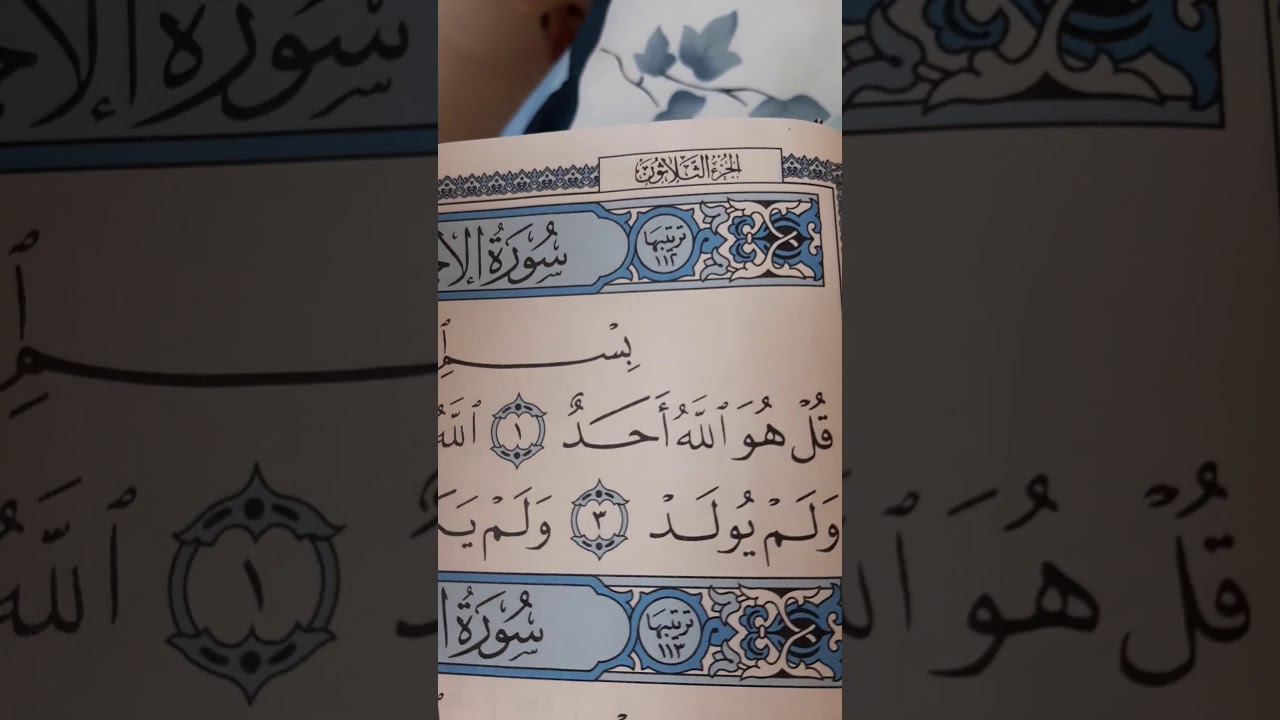 الجزء الثلاثون
سُورَةُ الإخ
ترتيبها
١١٢
بِسْمِ ٱ
قُلْ هُوَ ٱللَّهُ أَحَدٌ ١ ٱللَّهُ
وَلَمْ يُولَدْ ٣ وَلَمْ يَكُ
سُورَةُ ا
ترتيبها
١١٣